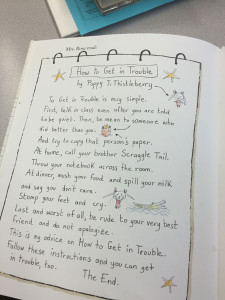 Mrs. Rose read:
How to Get in Trouble
by Poppy T. Thistleberry
To Get in Trouble is very simple.
First, talk in class even after you are told
to be quiet. Then, be mean to someone who
did better than you.
And try to copy that person's paper.
At home, call your brother Scraggle Tail.
Throw your notebook across the room.
At dinner, mash your food and spill your milk
and say you don't care.
Stomp your feet and cry.
Last and worst of all, be rude to your very best
friend and do not apologize.
This is my advice on How to Get in Trouble.
Follow these instructions and you can get
in trouble, too.
The End.